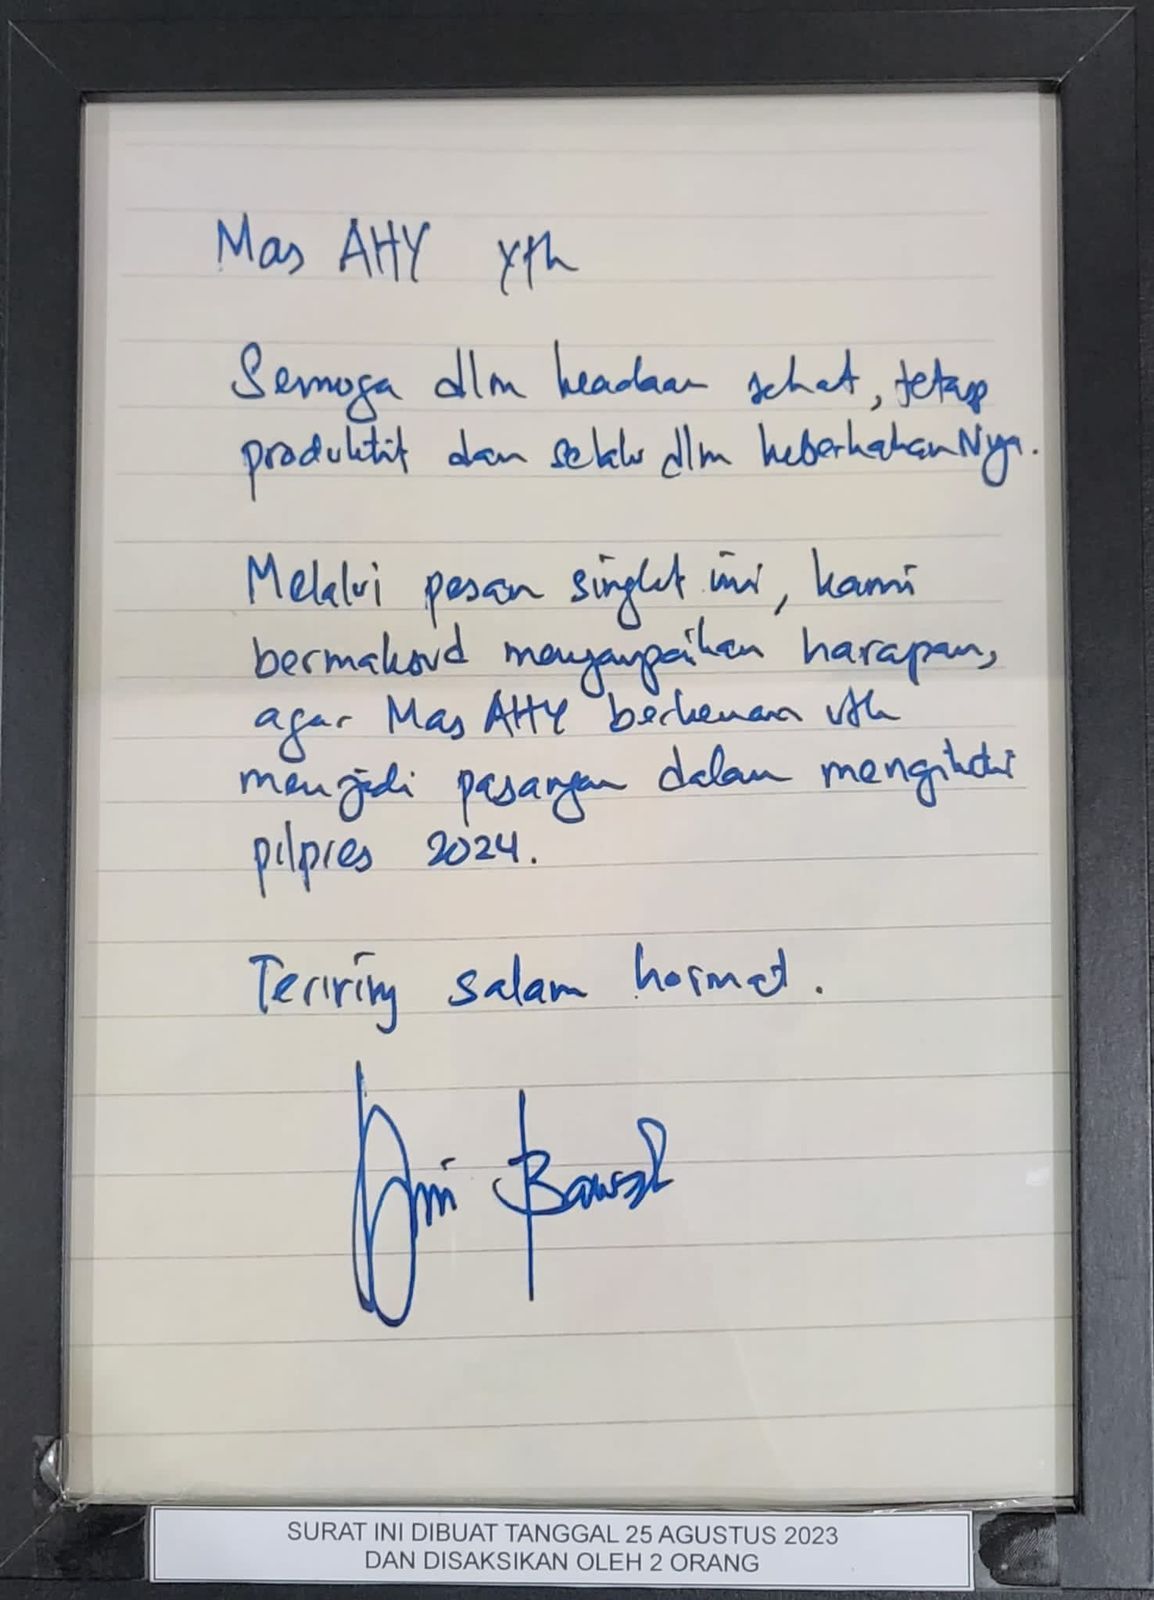 Mas AHY Yth
Semoga dlm keadaan sehat, tetap
produktif dan selalu dlm keberkahanNya.
Melalui pesan singkat ini, kami
bermaksud menyampaikan harapan,
agar Mas AHY berkenan utk
menjadi pasangan dalam mengikuti
pilpres 2024.
Teriring salam hormat.
Anies Baswedan
SURAT INI DIBUAT TANGGAL 25 AGUSTUS 2023
DAN DISAKSIKAN OLEH 2 ORANG